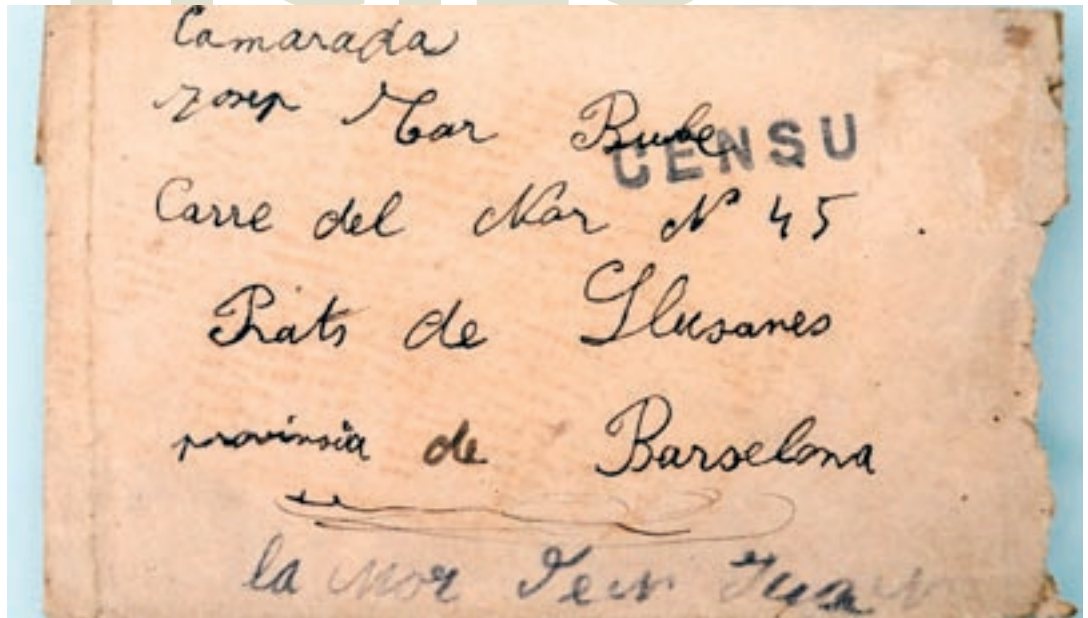 Camarada
Josep Tar
CENSU
Carre del Mar Nº 45
Prats de Llusanes
provinsia de Barselona
la